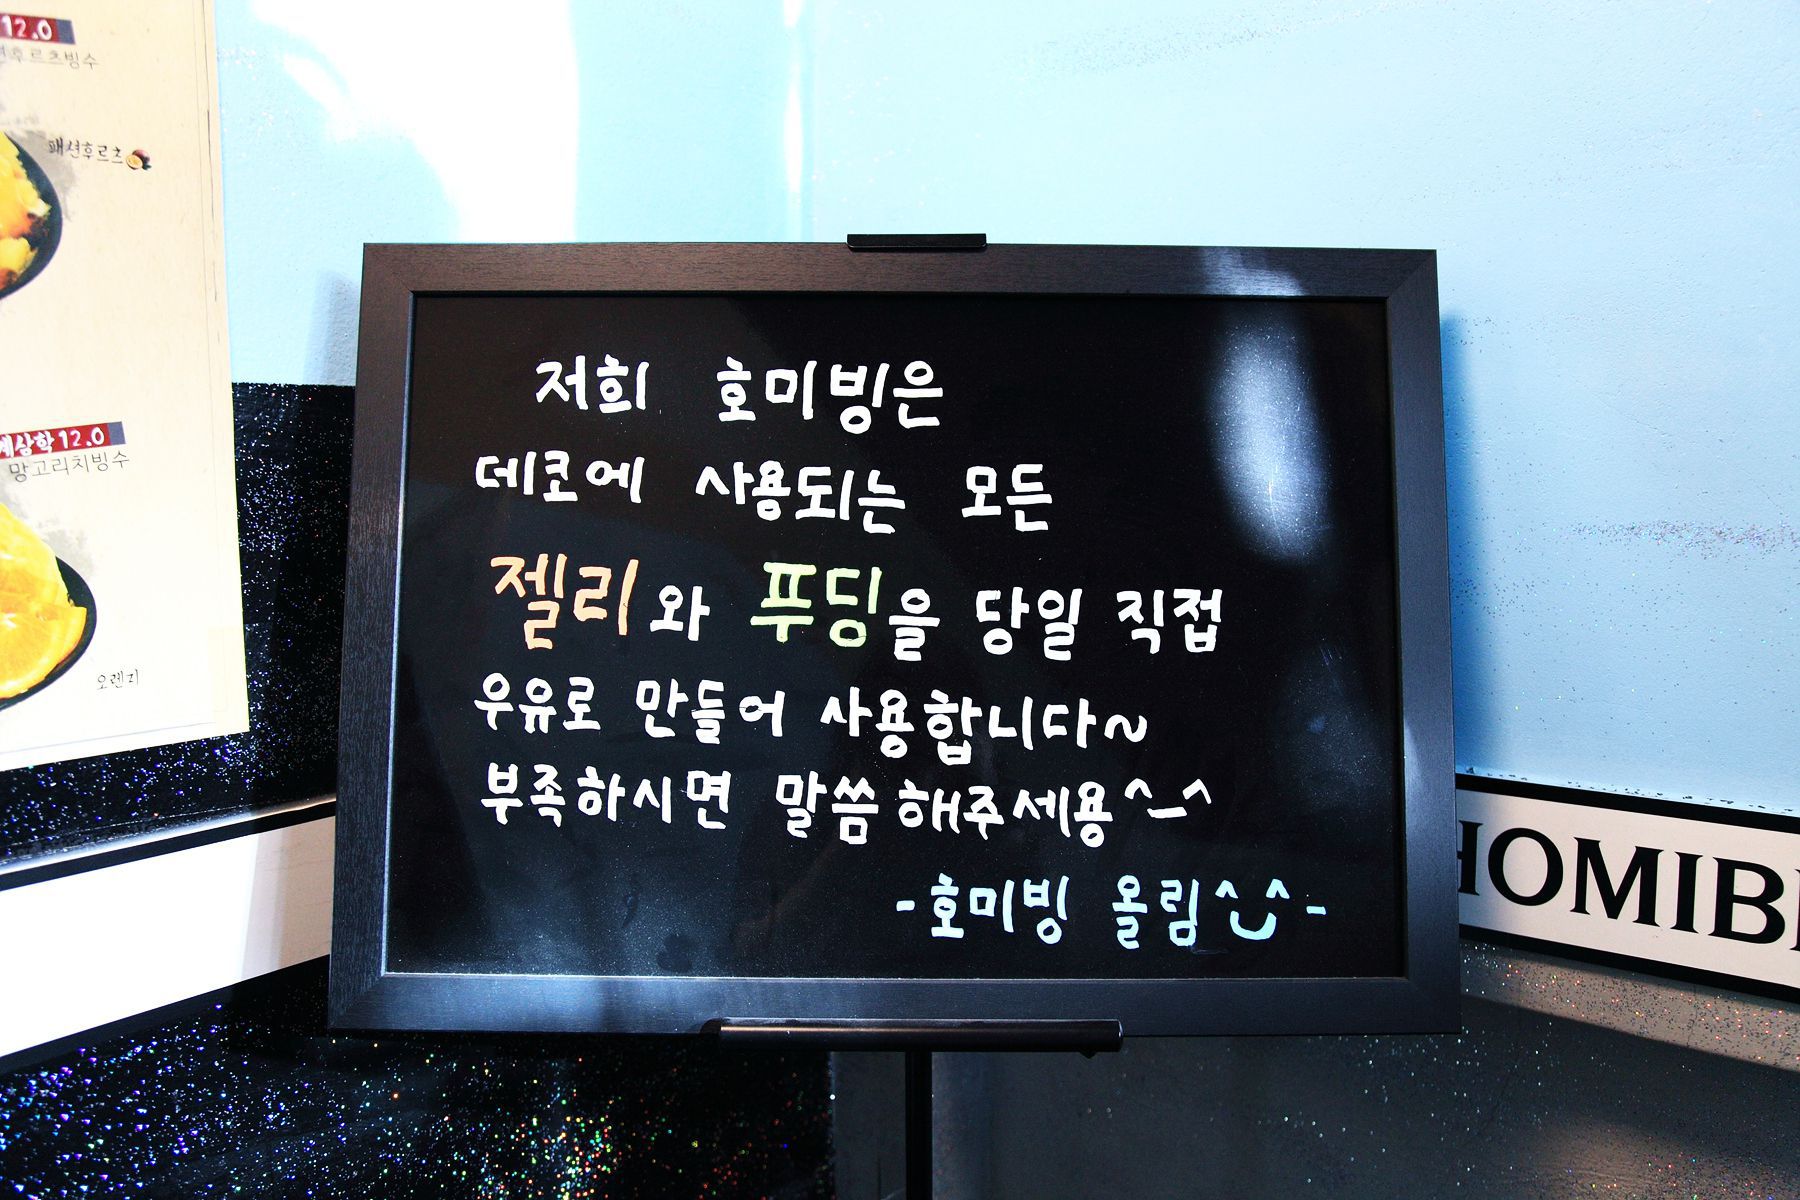 12.0
후르츠빙수
패션후르츠
12.0
망고리치빙수
오렌지
저희 호미빙은
데코에 사용되는 모든
젤리와 푸딩을 당일 직접
우유로 만들어 사용합니다~
부족하시면 말씀해주세용^-^
-호미빙 올림^‿^-
HOMIB